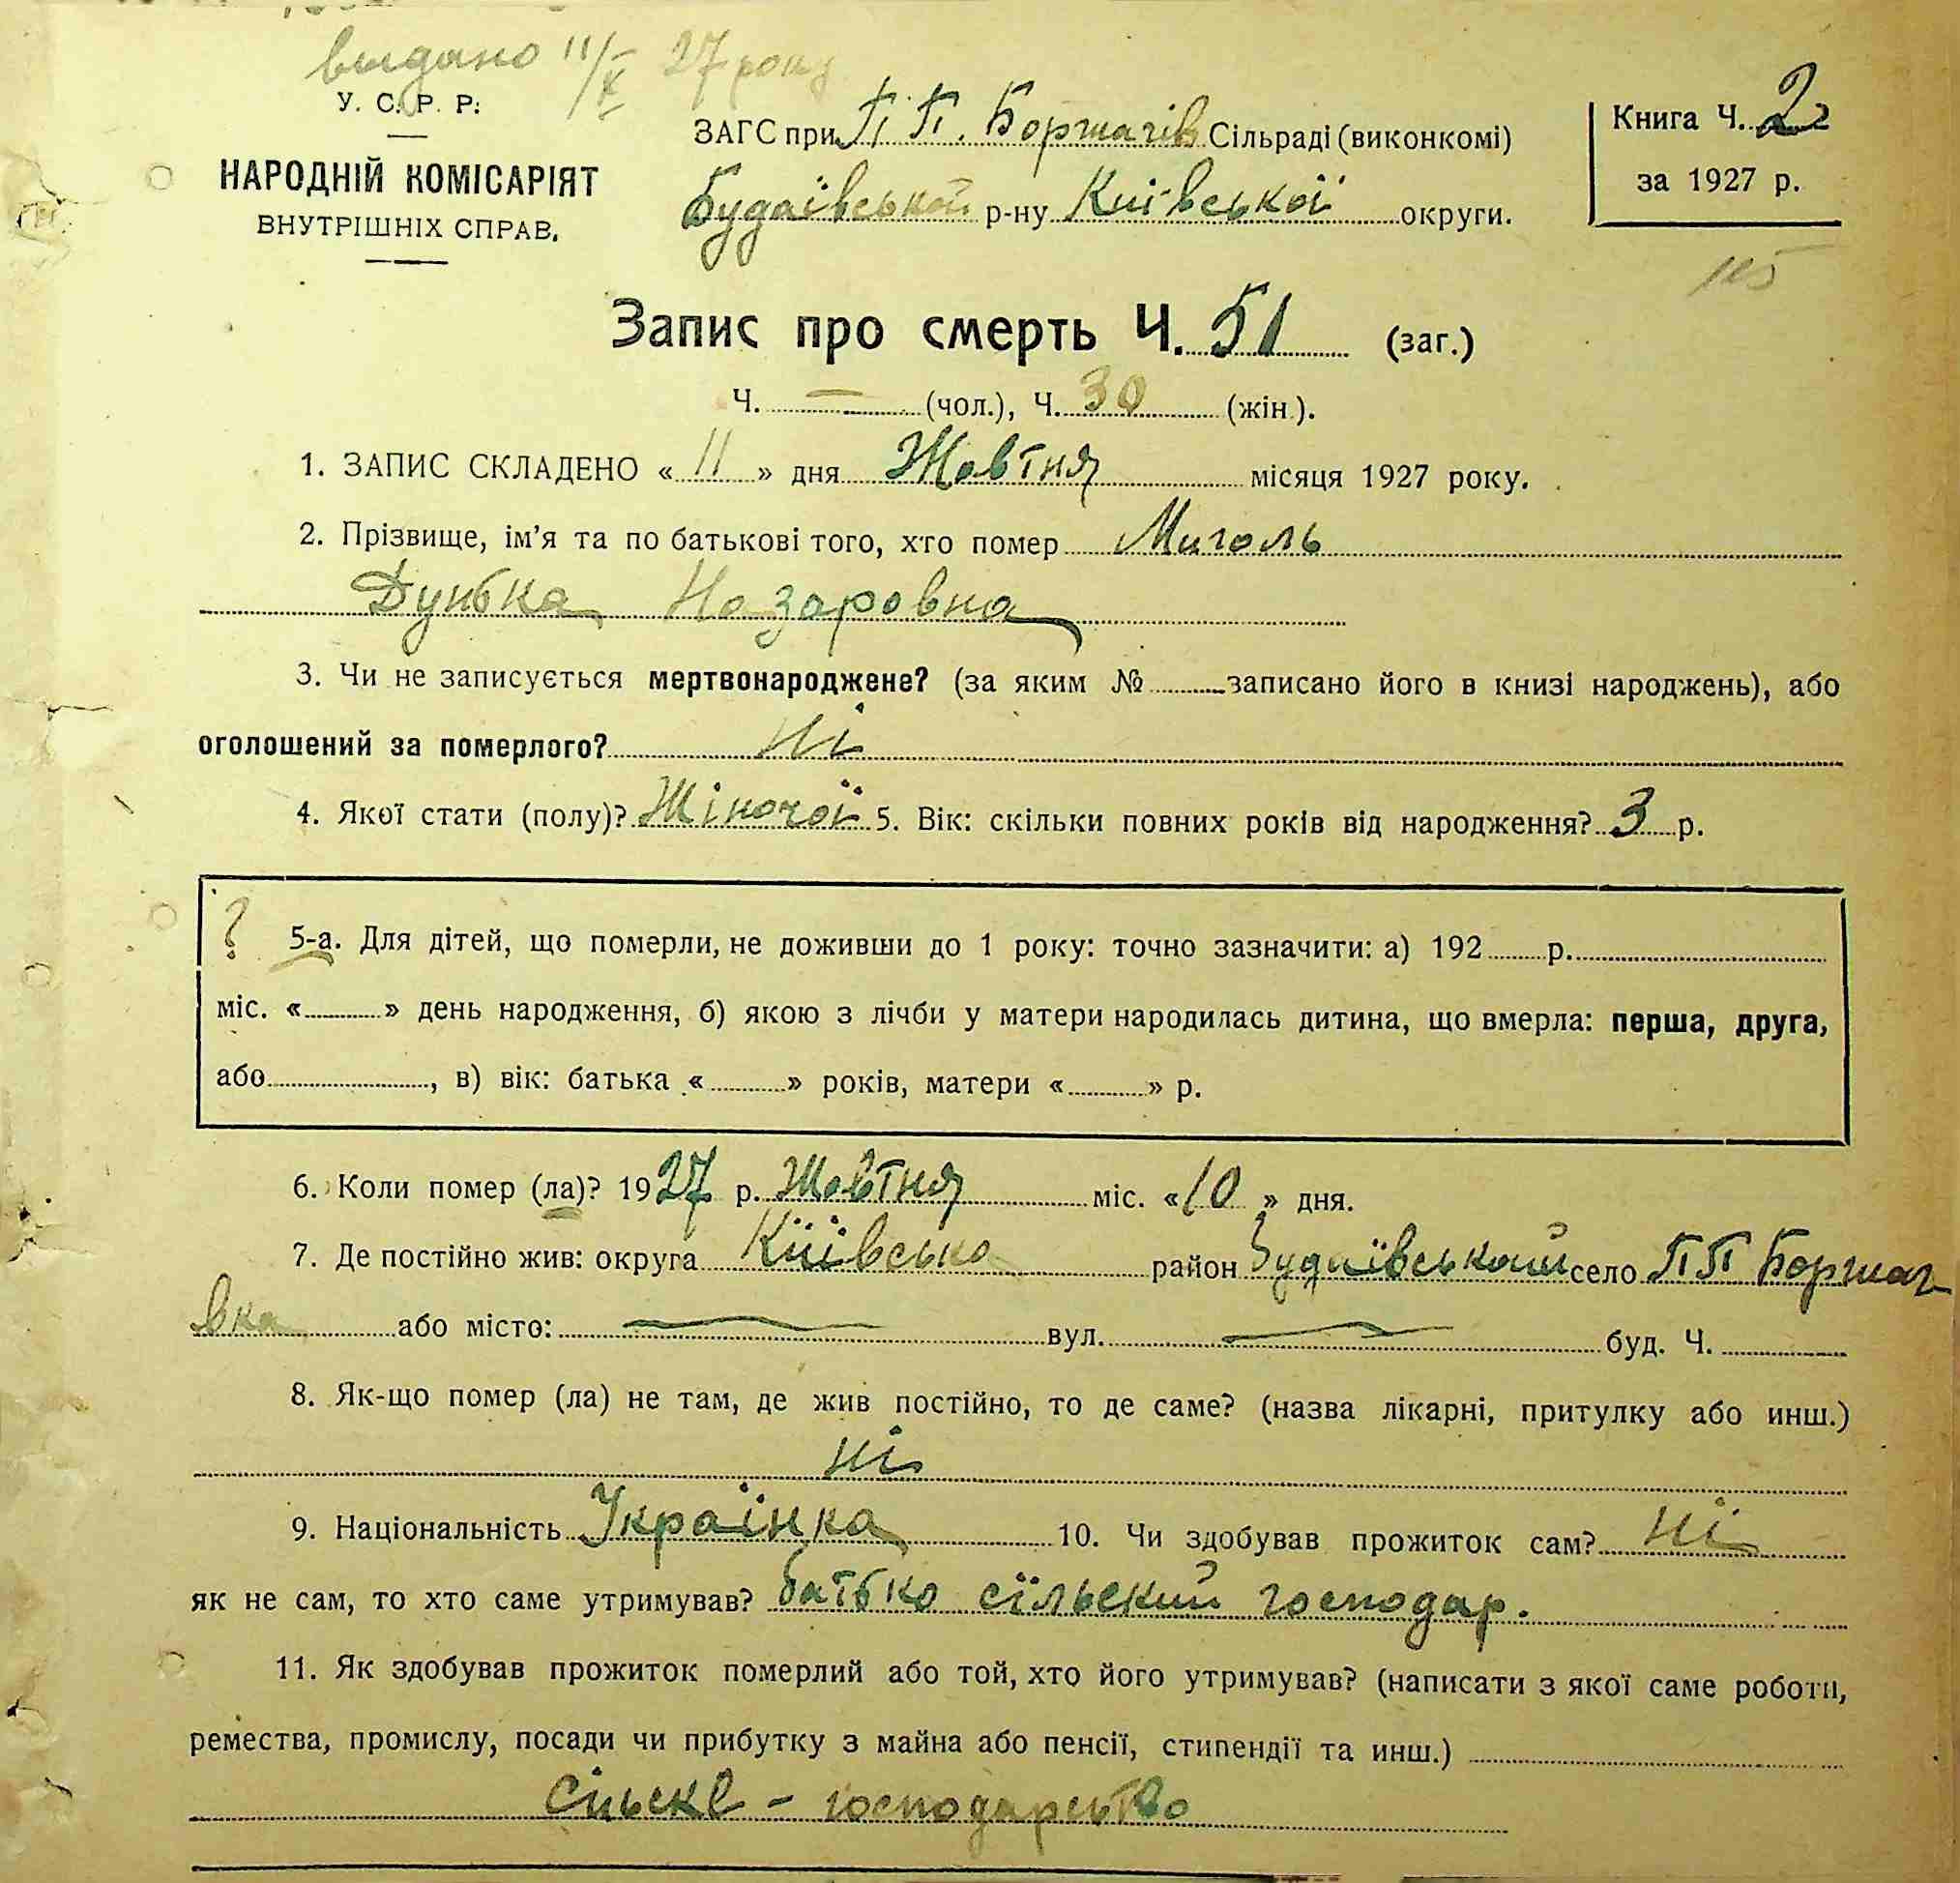 видано 11/X 27 року
У. С. Р. Р.
НАРОДНІЙ КОМІСАРІЯТ
ВНУТРІШНІХ СПРАВ.
ЗАГС при П П. Борщагів Сільраді (виконкомі)
Будаївської р-ну Київської округи.
Книга Ч. 2
за 1927 р.
Запис про смерть Ч. 51 (заг.)
Ч. — (чол.), Ч. 30 (жін.).
1. ЗАПИС СКЛАДЕНО « 11 » дня Жовтня місяця 1927 року.
2. Прізвище, ім'я та по батькові того, хто помер Миголь
Дунька Назаровна
3. Чи не записується мертвонароджене? (за яким № записано його в книзі народжень), або
оголошений за померлого? Ні
4. Якої стати (полу)? Жіночої 5. Вік: скільки повних років від народження? 3 р.
? 5-а. Для дітей, що померли, не доживши до 1 року: точно зазначити: а) 192 р.
міс. « » день народження, б) якою з лічби у матери народилась дитина, що вмерла: перша, друга,
або , в) вік: батька « » років, матери « » р.
6. Коли помер (ла)? 1927 р. Жовтня міс. «10» дня.
7. Де постійно жив: округа Київська район Будаївський село П П Борщаг
вка або місто: — вул. — буд. Ч.
8. Як-що помер (ла) не там, де жив постійно, то де саме? (назва лікарні, притулку або инш.)
Ні
9. Національність Українка 10. Чи здобував прожиток сам? Ні
як не сам, то хто саме утримував? батько сільский господар.
11. Як здобував прожиток померлий або той, хто його утримував? (написати з якої саме роботи,
ремества, промислу, посади чи прибутку з майна або пенсії, стипендії та инш.)
Сільске - господарство